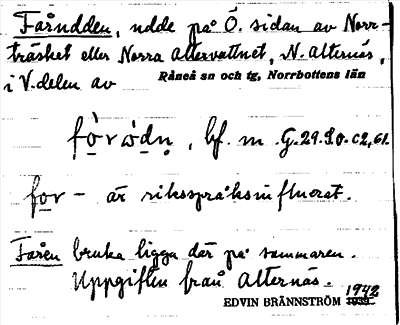 Fårudden, udde på Ö. sidan av Norr-
träsket eller Norra Altervattnet, N. Alternäs,
i V. delen av Råneå sn och tg, Norrbottens län
fò̱rὼdṇ, bf. m. G.29. S.0. c2,61.
fo̱r - är riksspråksinfluerat.
Fåren bruka ligga där på sommaren.
Uppgiften från Alternäs.
EDVIN BRÄNNSTRÖM 1939 1942